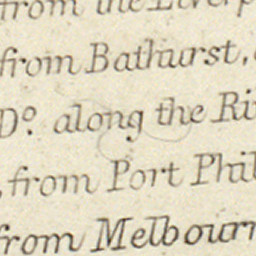 from the Liverp
from Bathurst,
Do. along the Ri
from Port Phil
from Melbour